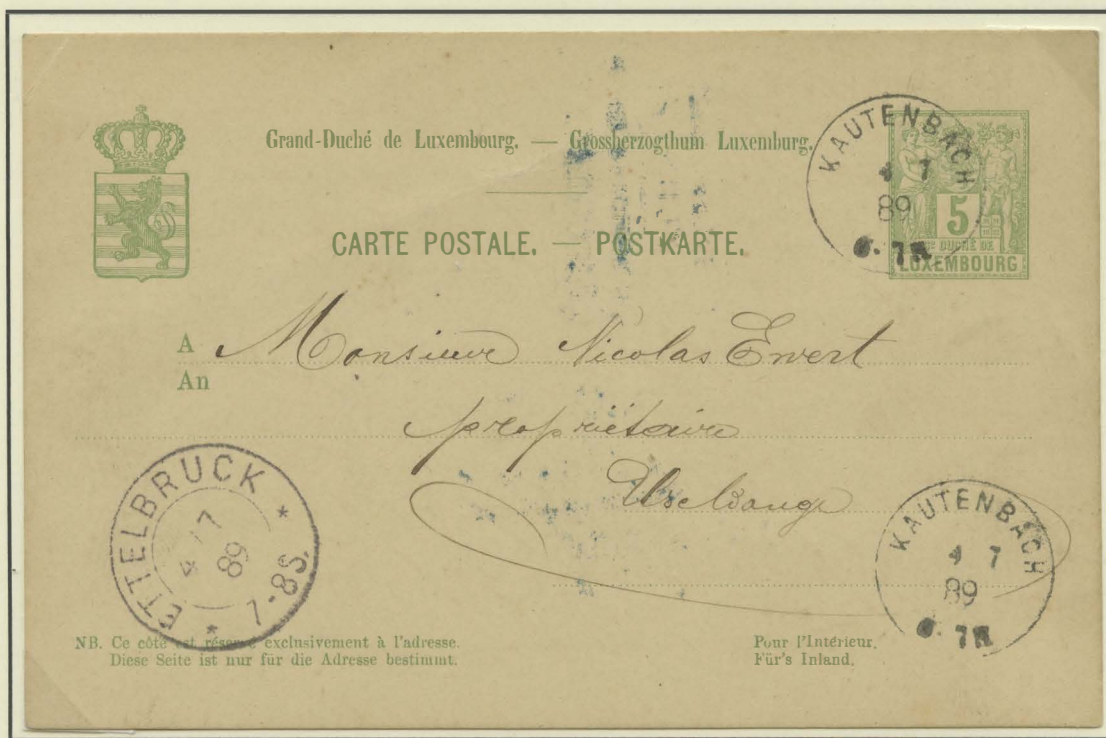 Grand-Duché de Luxembourg. — Grossherzogthum Luxemburg.
CARTE POSTALE. — POSTKARTE.
KAUTENBACH
4 7
89
5
DUCHÉ DE
LUXEMBOURG
A Monsieur Nicolas Ewert
An
propriétaire
Useldange
ETTELBRUCK
4 7
89
7-8S.
KAUTENBACH
4 7
89
NB. Ce côté est réservé exclusivement à l'adresse.
Diese Seite ist nur für die Adresse bestimmt.
Pour l'Intérieur.
Für's Inland.